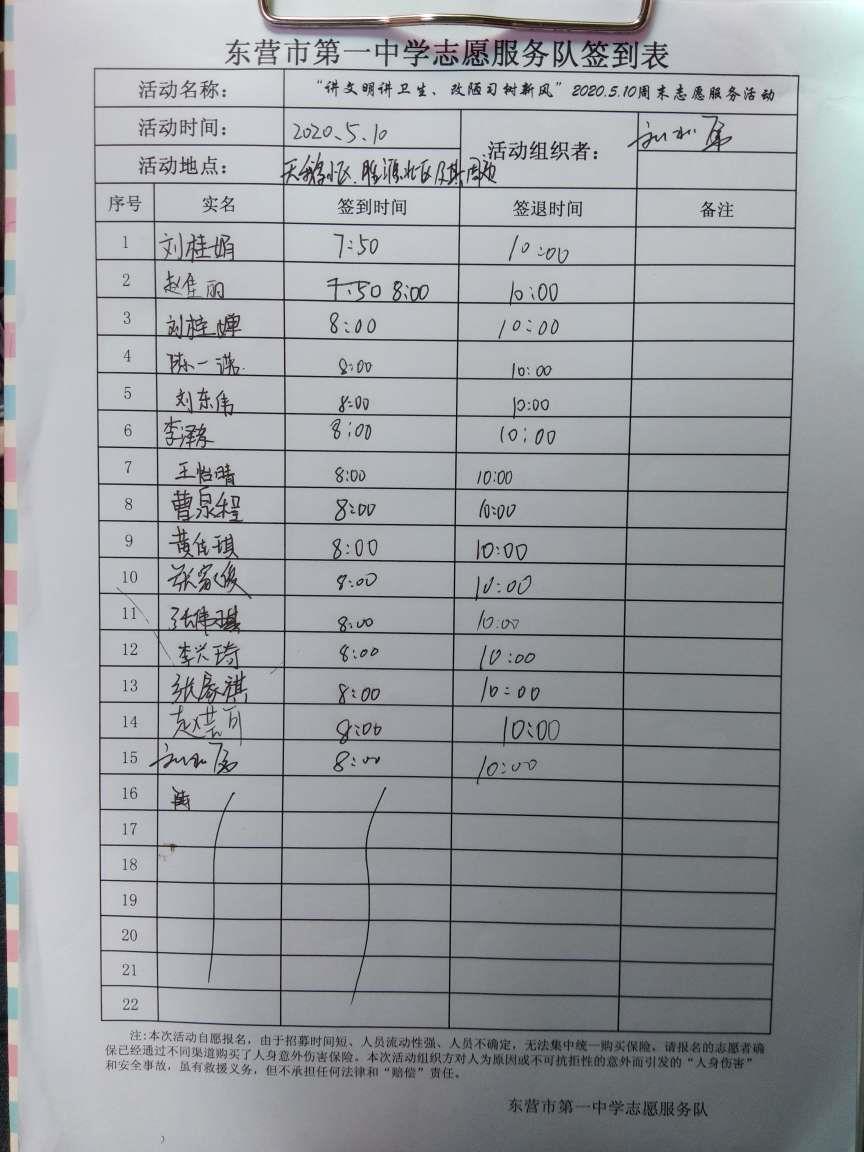 东营市第一中学志愿服务队签到表
活动名称： “讲文明讲卫生、改陋习树新风”2020.5.10周末志愿服务活动
活动时间： 2020.5.10 活动组织者：
活动地点： 天鹅小区、胜源北区及其周边
序号 实名 签到时间 签退时间 备注
1 刘桂娟 7:50 10:00
2 赵佳丽 7:50 8:00 10:00
3 刘桂婵 8:00 10:00
4 陈一诺 8:00 10:00
5 刘东伟 8:00 10:00
6 李泽 8:00 10:00
7 王怡晴 8:00 10:00
8 曹泉程 8:00 10:00
9 黄佳琪 8:00 10:00
10 张家俊 8:00 10:00
11 张伟琪 8:00 10:00
12 李兴琦 8:00 10:00
13 张家祺 8:00 10:00
14 赵芸可 8:00 10:00
15 8:00 10:00
16
17
18
19
20
21
22
注:本次活动自愿报名，由于招募时间短、人员流动性强、人员不确定，无法集中统一购买保险。请报名的志愿者确
保已经通过不同渠道购买了人身意外伤害保险。本次活动组织方对人为原因或不可抗拒性的意外而引发的“人身伤害”
和安全事故，虽有救援义务，但不承担任何法律和“赔偿”责任。
东营市第一中学志愿服务队